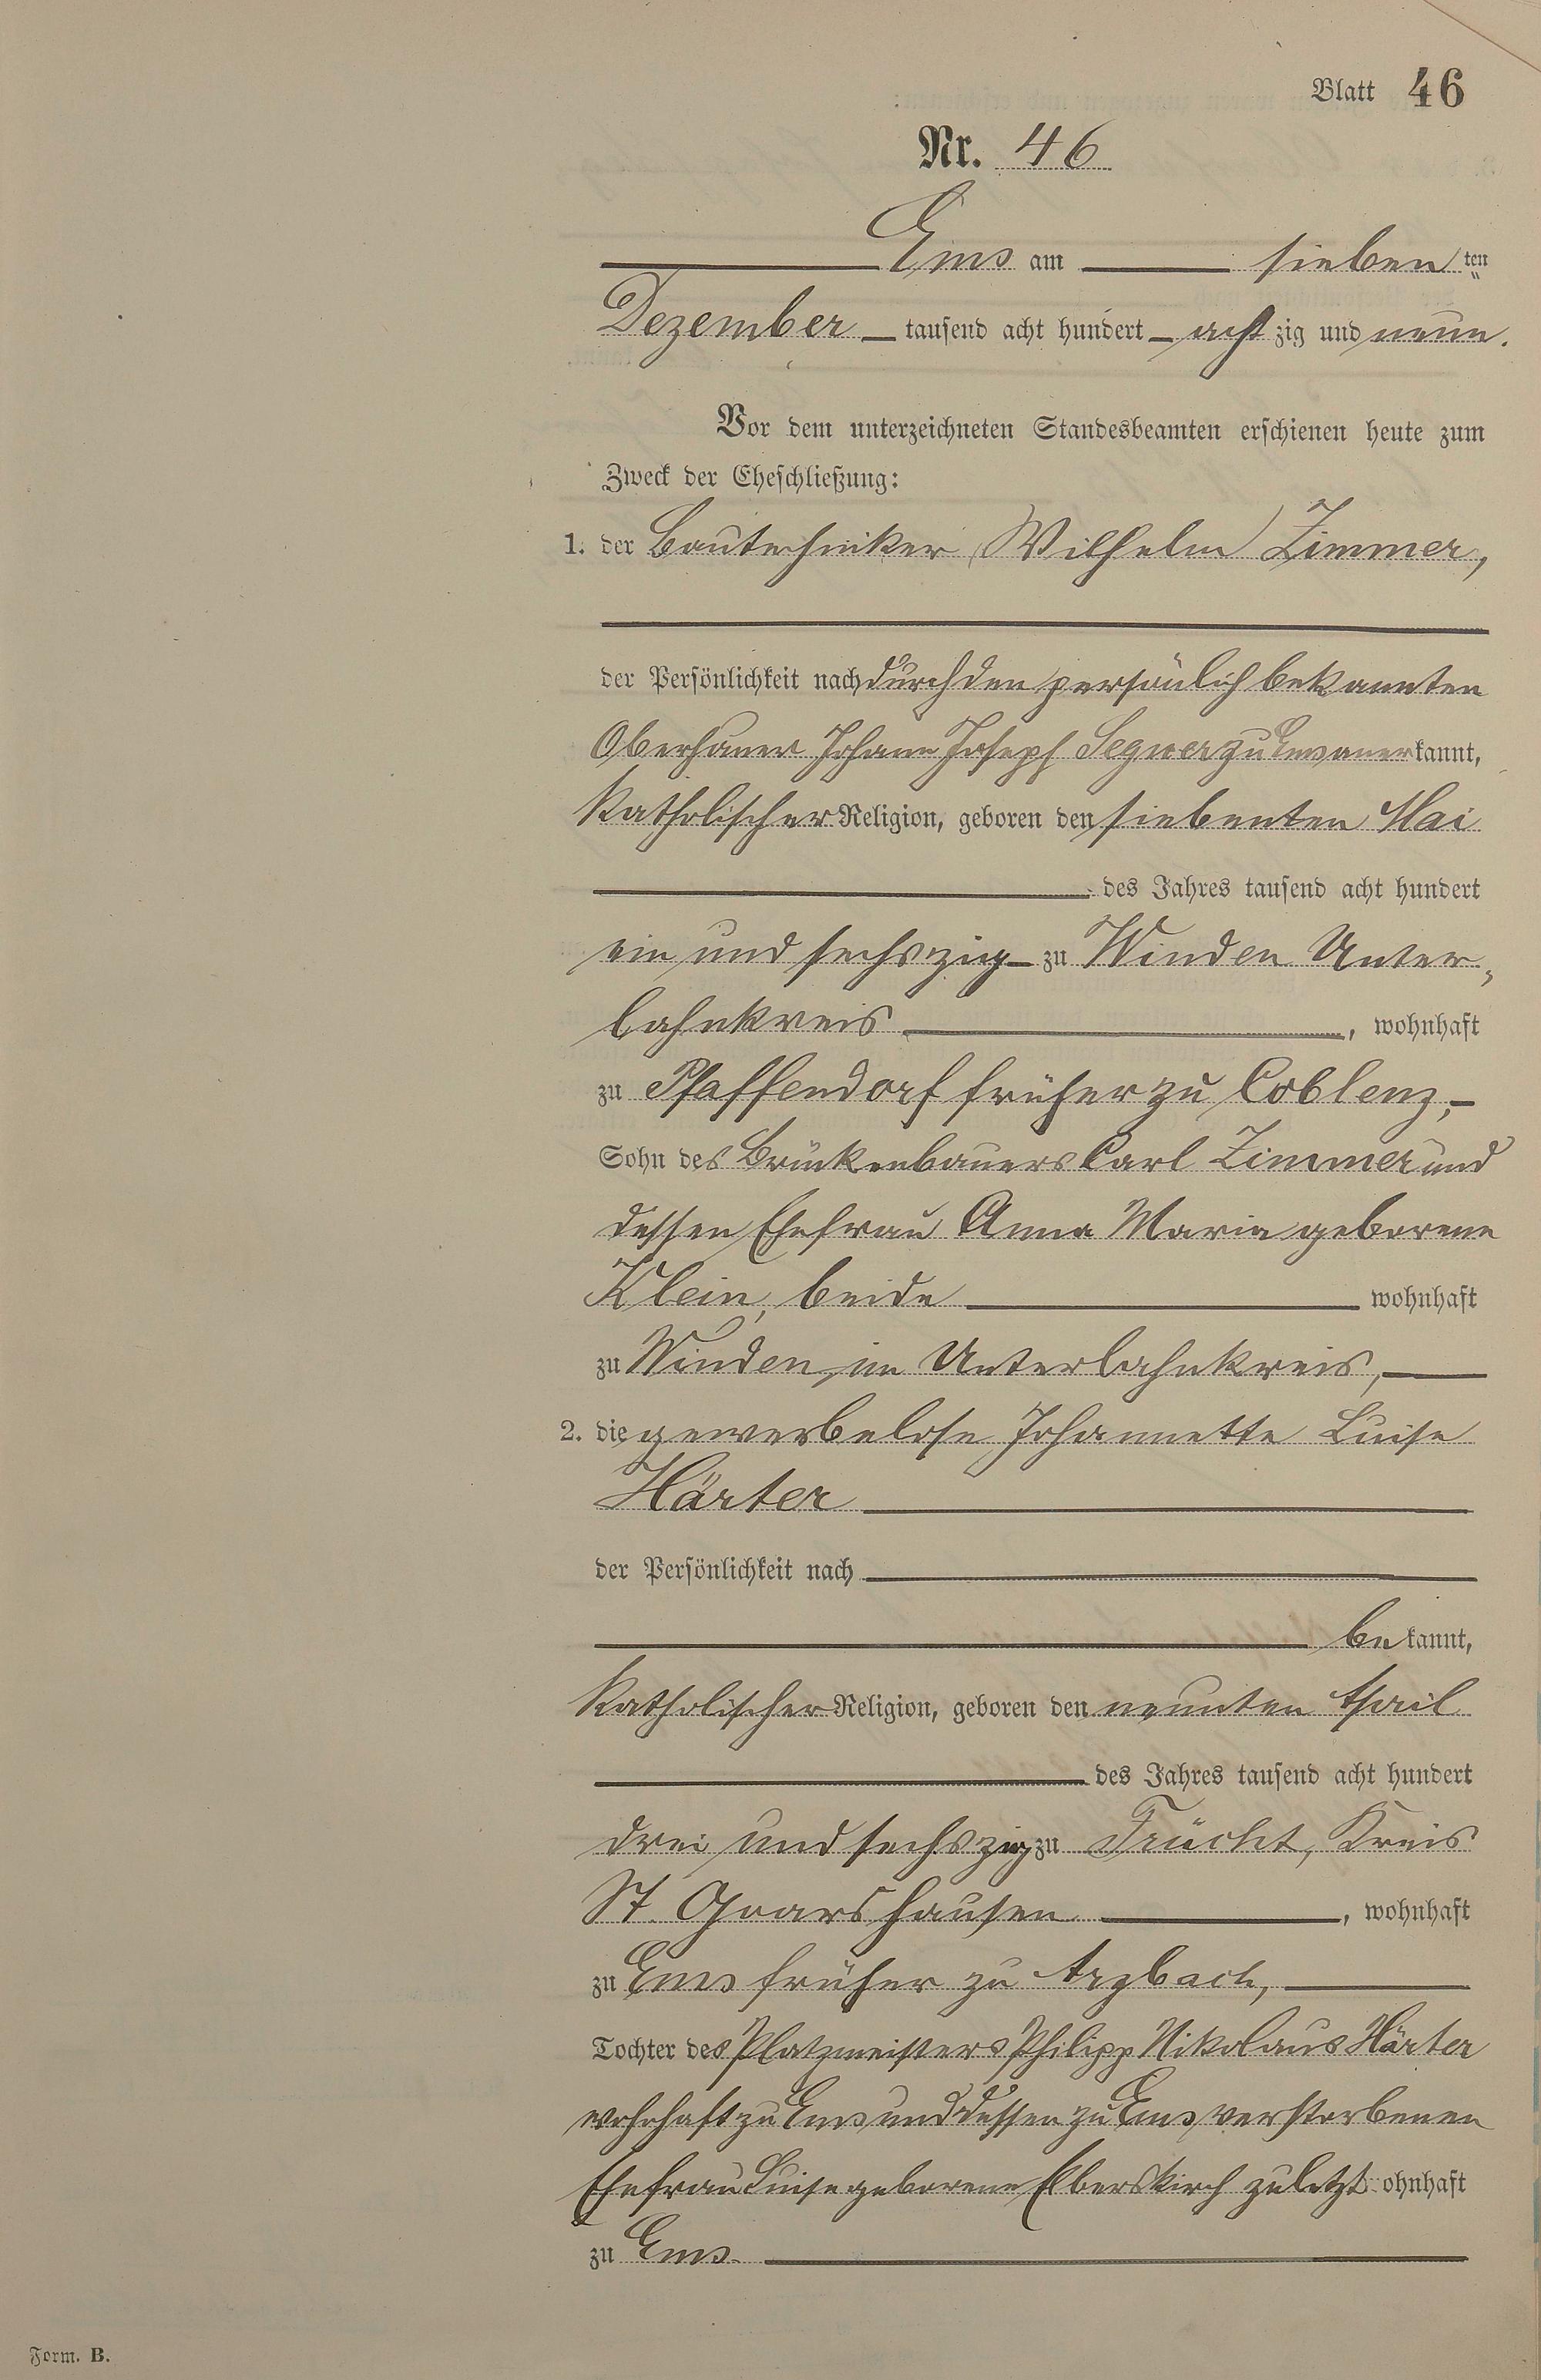 Blatt 46
Nr. 46
Ems am siebenten
Dezember tausend acht hundert achtzig und neun.
Vor dem unterzeichneten Standesbeamten erschienen heute zum
Zweck der Eheschließung:
1. der Bautechniker Wilhelm Zimmer,
der Persönlichkeit nach durch den persönlich bekannten
Oberhauer Johann Joseph Segner zu Ems anerkannt,
katholischer Religion, geboren den siebenten Mai
des Jahres tausend acht hundert
ein und sechszig zu Winden Unter-
lahnkreis, wohnhaft
zu Pfaffendorf früher zu Coblenz,
Sohn des Brückenbauers Carl Zimmer und
dessen Ehefrau Anna Maria geborene
Klein, beide wohnhaft
zu Winden, im Unterlahnkreis,
2. die gewerbelose Johannette Luise
Härter
der Persönlichkeit nach
bekannt,
katholischer Religion, geboren den neunten April
des Jahres tausend acht hundert
drei und sechszig zu Frücht, Kreis
St. Goarshausen, wohnhaft
zu Ems früher zu Arzbach,
Tochter des Platzmeisters Philipp Nikolaus Härter
wohnhaft zu Ems und dessen zu Ems verstorbenen
Ehefrau Luise geborene Elberskirch zuletzt wohnhaft
zu Ems.
Form. B.